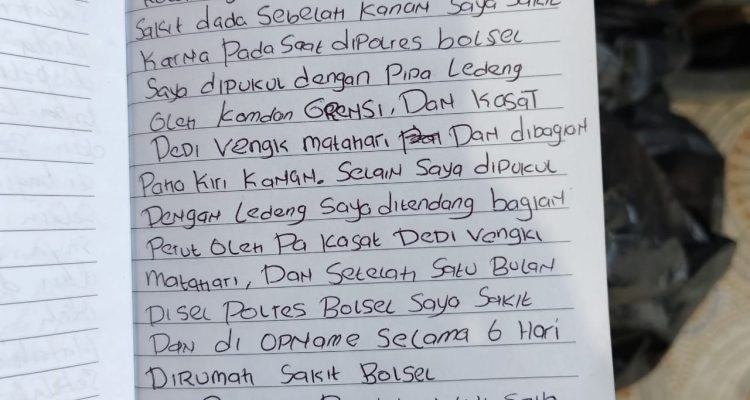 Sakit dada Sebelah Kanan Saya Sakit
Karna Pada Saat dipolres bolsel
Saya dipukul dengan Pipa Ledeng
Oleh Komdan GRENSI, Dan Kasat
DEDI Vengki matahari Dan dibagian
Paha Kiri Kanan. Selain Saya dipukul
Dengan Ledeng Saya ditendang bagian
Perut Oleh Pa Kasat DEDI Vengki
Matahari, Dan Setelah Satu Bulan
DISEL POLRES BOLSEL Saya Sakit
Dan di OPName Selama 6 Hari
DIRUmah Sakit Bolsel